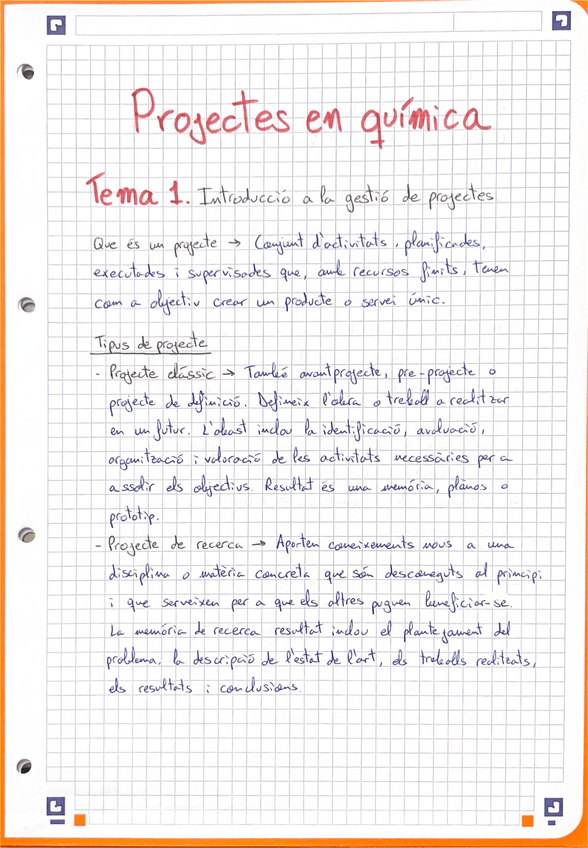 Projectes en química
Tema 1. Introducció a la gestió de projectes
Que és un projecte → Conjunt d'activitats, planificades,
executades i supervisades que, amb recursos finits, tenen
com a objectiu crear un producte o servei únic.
Tipus de projecte
- Projecte clàssic → També avantprojecte, pre-projecte o
projecte de definició. Defineix l'obra o treball a realitzar
en un futur. L'abast inclou la identificació, avaluació,
organització i valoració de les activitats necessàries per a
assolir els objectius. Resultat és una memòria, plànos o
prototip.
- Projecte de recerca → Aporten coneixements nous a una
disciplina o matèria concreta que són desconeguts al principi
i que serveixen per a que els altres puguen beneficiar-se.
La memòria de recerca resultat inclou el plantejament del
problema, la descripció de l'estat de l'art, els treballs realitzats,
els resultats i conclusions.